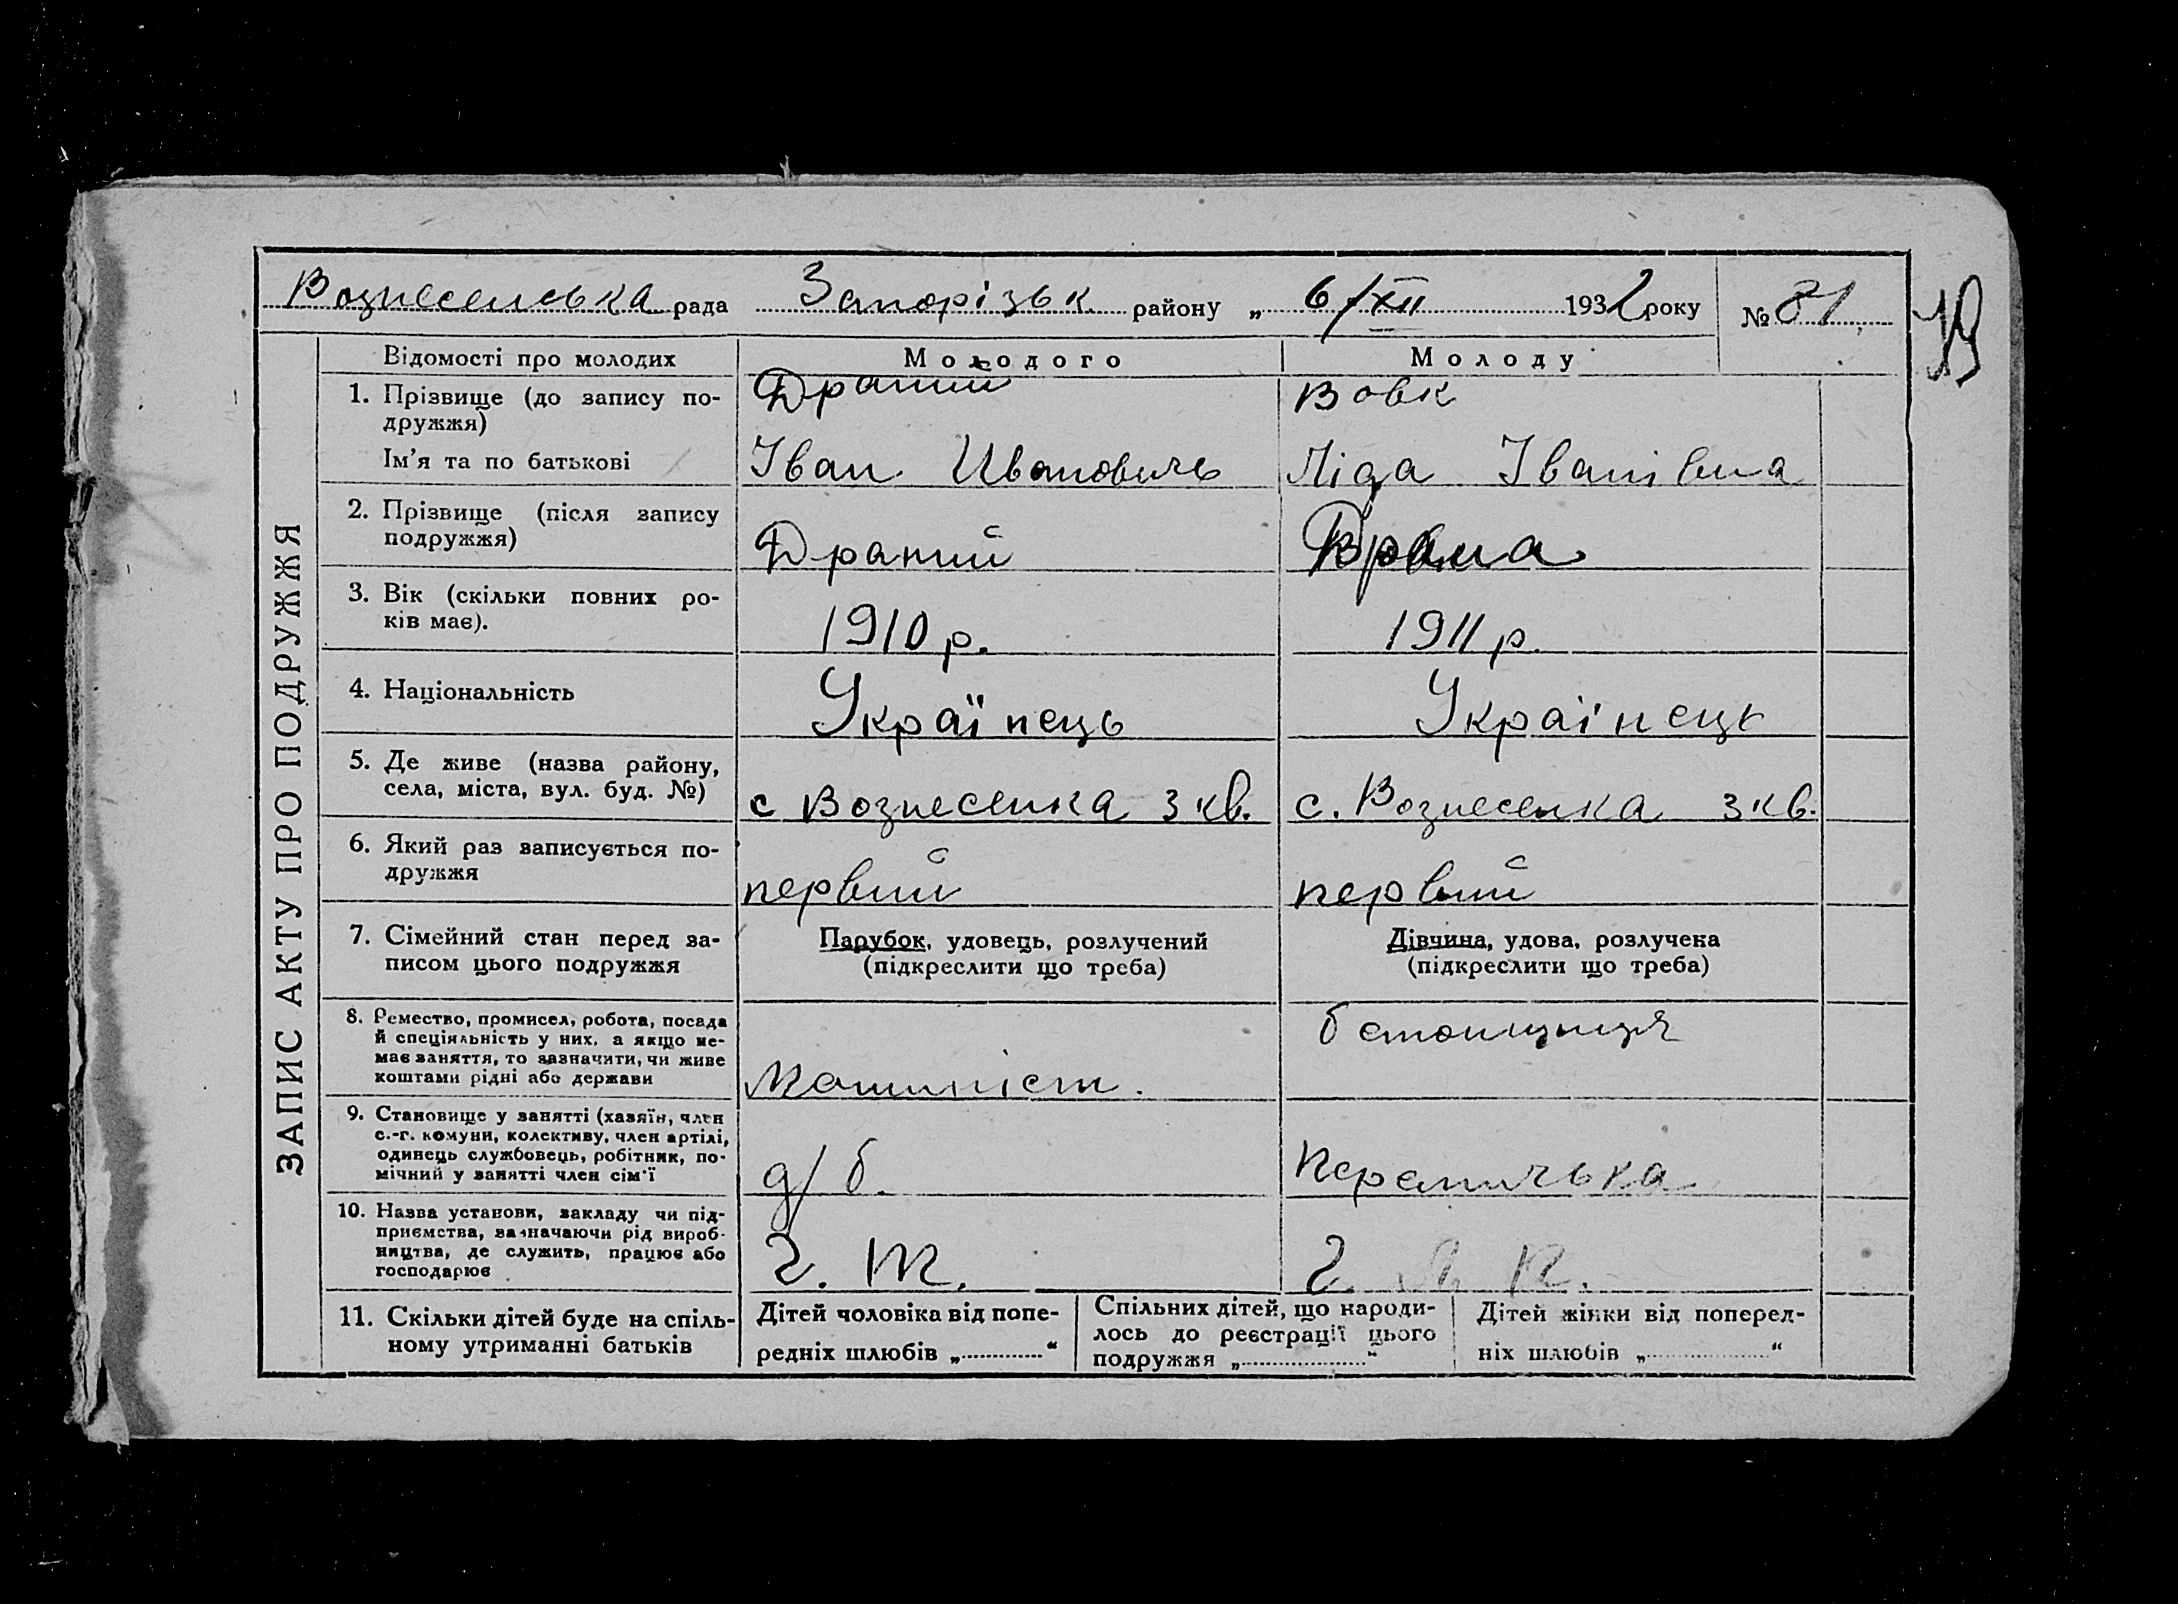 Вознесенська рада Запорізьк району „ 6/XII 1932 року № 81
ЗАПИС АКТУ ПРО ПОДРУЖЖЯ
Відомості про молодих Молодого Молоду
1. Прізвище (до запису по- Драний Вовк
дружжя)
Ім'я та по батькові Іван Ивановичь Ліда Іванівна
2. Прізвище (після запису
подружжя) Драний
3. Вік (скільки повних ро-
ків має). 1910 р. 1911 р.
4. Національність Українець Українець
5. Де живе (назва району,
села, міста, вул. буд. №) с Вознесенка 3 кв. с. Вознесенка 3 кв.
6. Який раз записується по-
дружжя первий первий
7. Сімейний стан перед за- Парубок, удовець, розлучений Дівчина, удова, розлучена
писом цього подружжя (підкреслити що треба) (підкреслити що треба)
8. Ремество, промисел, робота, посада бетонщиця
й спеціяльність у них, а якщо не-
має заняття, то зазначити, чи живе
коштами рідні або держави Машиніст.
9. Становище у занятті (хазяїн, член
с.-г. комуни, колективу, член артілі,
одинець службовець, робітник, по-
мічний у занятті член сім'ї д/б.
10. Назва установи, закладу чи під-
приємства, зазначаючи рід вироб-
ництва, де служить, працює або
господарює
11. Скільки дітей буде на спіль-
ному утриманні батьків
Дітей чоловіка від попе-
редніх шлюбів „ “
Спільних дітей, що народи-
лось до реєстрації цього
подружжя „ “
Дітей жінки від поперед-
ніх шлюбів „ “